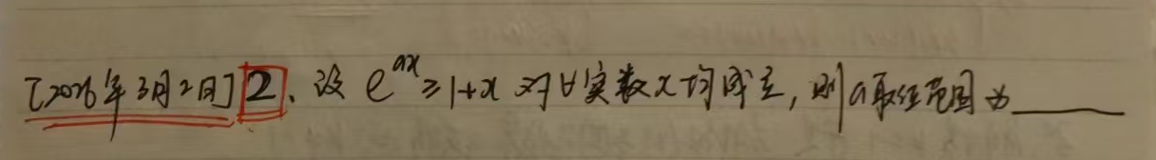 [2026年3月2日] 2、设 e^{ax} ≥ 1+x 对∀实数x均成立，则a取值范围为______